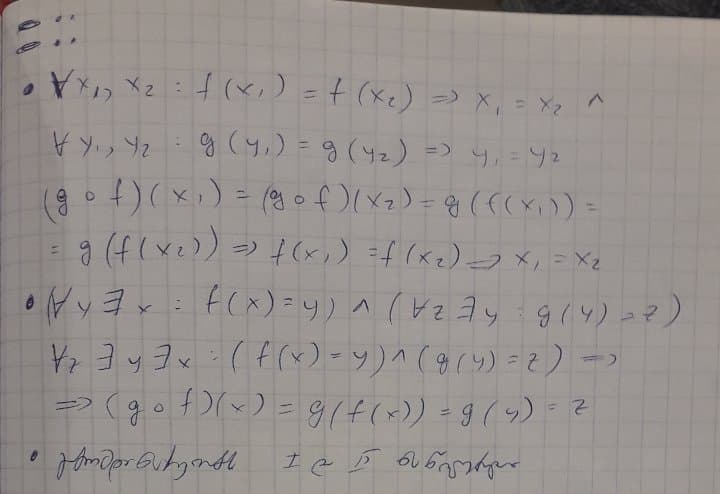 • ∀x₁, x₂ : f(x₁) = f(x₂) => x₁ = x₂ ∧
∀ y₁, y₂ : g(y₁) = g(y₂) => y₁ = y₂
(g ∘ f)(x₁) = (g ∘ f)(x₂) = g(f(x₁)) =
= g(f(x₂)) => f(x₁) = f(x₂) => x₁ = x₂
• (∀y ∃x : f(x) = y) ∧ (∀z ∃y : g(y) = z)
∀z ∃y ∃x : (f(x) = y) ∧ (g(y) = z) =>
=> (g ∘ f)(x) = g(f(x)) = g(y) = z
• I და II